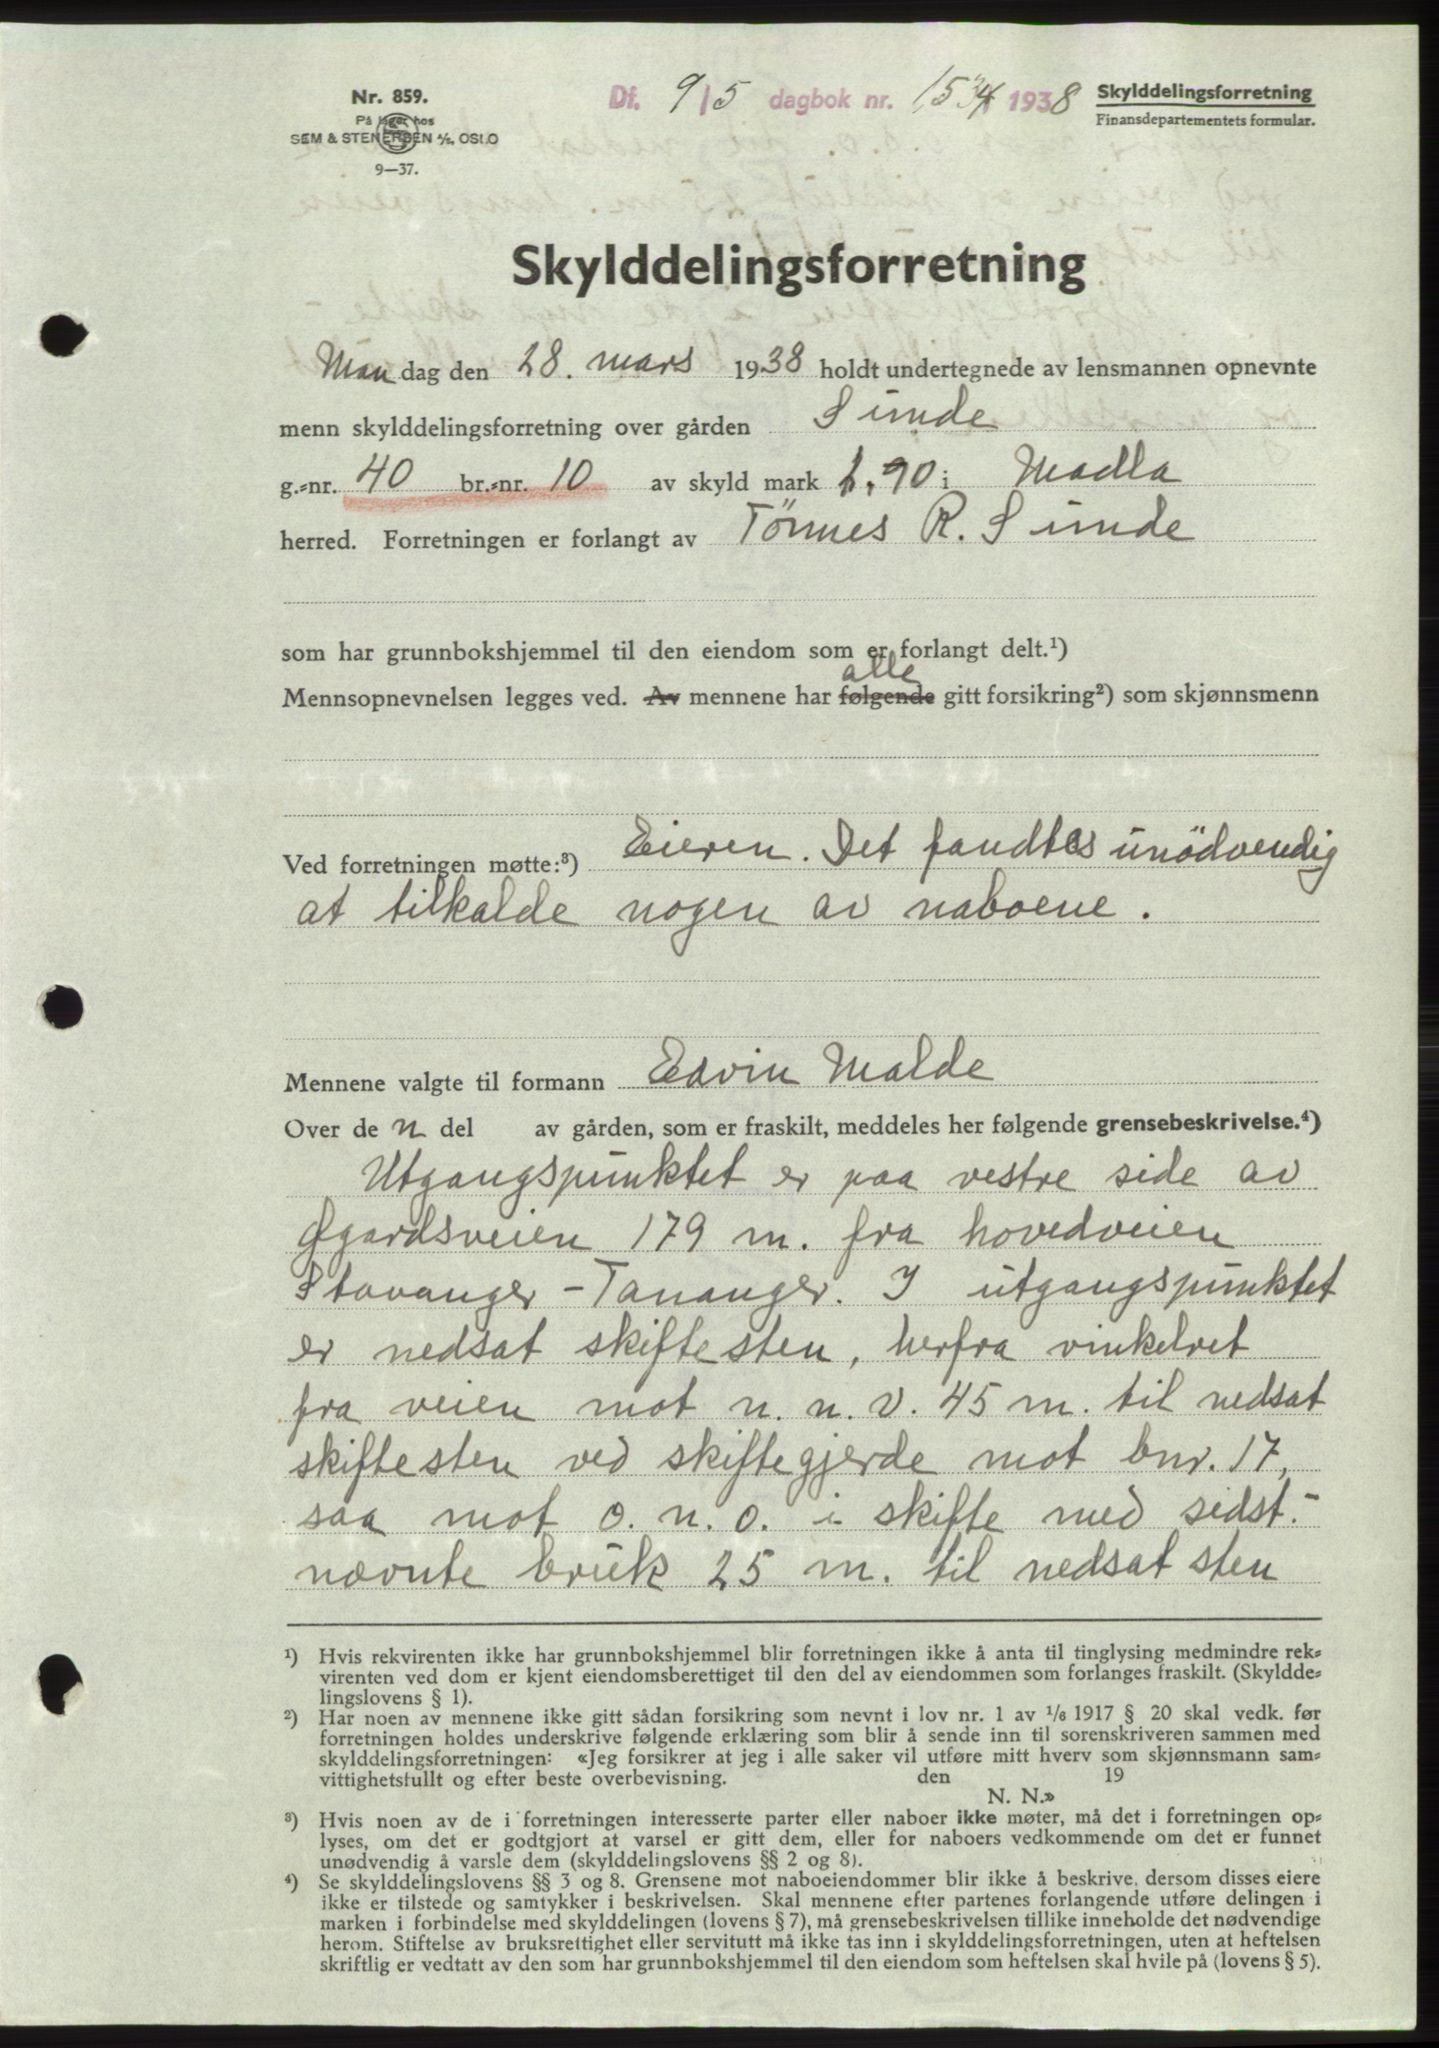 Nr. 859.
På lager hos
SEM & STENERSEN A/S, OSLO
9—37.
Df. 9/5 dagbok nr. 1534 1938
Skylddelingsforretning
Finansdepartementets formular.
Skylddelingsforretning
Mandag den 28. mars 1938 holdt undertegnede av lensmannen opnevnte
menn skylddelingsforretning over gården Sunde
g.=nr. 40 br.=nr. 10 av skyld mark 1,90 i Madla
herred. Forretningen er forlangt av Tönnes R. Sunde
som har grunnbokshjemmel til den eiendom som er forlangt delt.¹)
alle
Mennsopnevnelsen legges ved. Av mennene har følgende gitt forsikring²) som skjønnsmenn
Ved forretningen møtte:³) Eieren. Det fandtes unödvendig
at tilkalde nogen av naboene.
Mennene valgte til formann Edvin Malde
Over den del av gården, som er fraskilt, meddeles her følgende grensebeskrivelse.⁴)
Utgangspunktet er paa vestre side av
Øgardsveien 179 m. fra hovedveien
Stavanger-Tananger. I utgangspunktet
er nedsat skiftesten, herfra vinkelret
fra veien mot n. n. v. 45 m. til nedsat
skiftesten ved skiftegjerde mot bnr. 17,
saa mot o. n. o. i skifte med sidst-
nævnte bruk 25 m. til nedsat sten
¹) Hvis rekvirenten ikke har grunnbokshjemmel blir forretningen ikke å anta til tinglysing medmindre rek=
virenten ved dom er kjent eiendomsberettiget til den del av eiendommen som forlanges fraskilt. (Skyldde=
lingslovens § 1).
²) Har noen av mennene ikke gitt sådan forsikring som nevnt i lov nr. 1 av 1/6 1917 § 20 skal vedk. før
forretningen holdes underskrive følgende erklæring som blir å sende inn til sorenskriveren sammen med
skylddelingsforretningen: «Jeg forsikrer at jeg i alle saker vil utføre mitt hverv som skjønnsmann sam=
vittighetsfullt og efter beste overbevisning. den 19
N. N.»
³) Hvis noen av de i forretningen interesserte parter eller naboer ikke møter, må det i forretningen op=
lyses, om det er godtgjort at varsel er gitt dem, eller for naboers vedkommende om det er funnet
unødvendig å varsle dem (skylddelingslovens §§ 2 og 8).
⁴) Se skylddelingslovens §§ 3 og 8. Grensene mot naboeiendommer blir ikke å beskrive, dersom disses eiere
ikke er tilstede og samtykker i beskrivelsen. Skal mennene efter partenes forlangende utføre delingen i
marken i forbindelse med skylddelingen (lovens § 7), må grensebeskrivelsen tillike inneholde det nødvendige
herom. Stiftelse av bruksrettighet eller servitutt må ikke tas inn i skylddelingsforretningen, uten at heftelsen
skriftlig er vedtatt av den som har grunnbokshjemmel til den eiendom som heftelsen skal hvile på (lovens § 5).